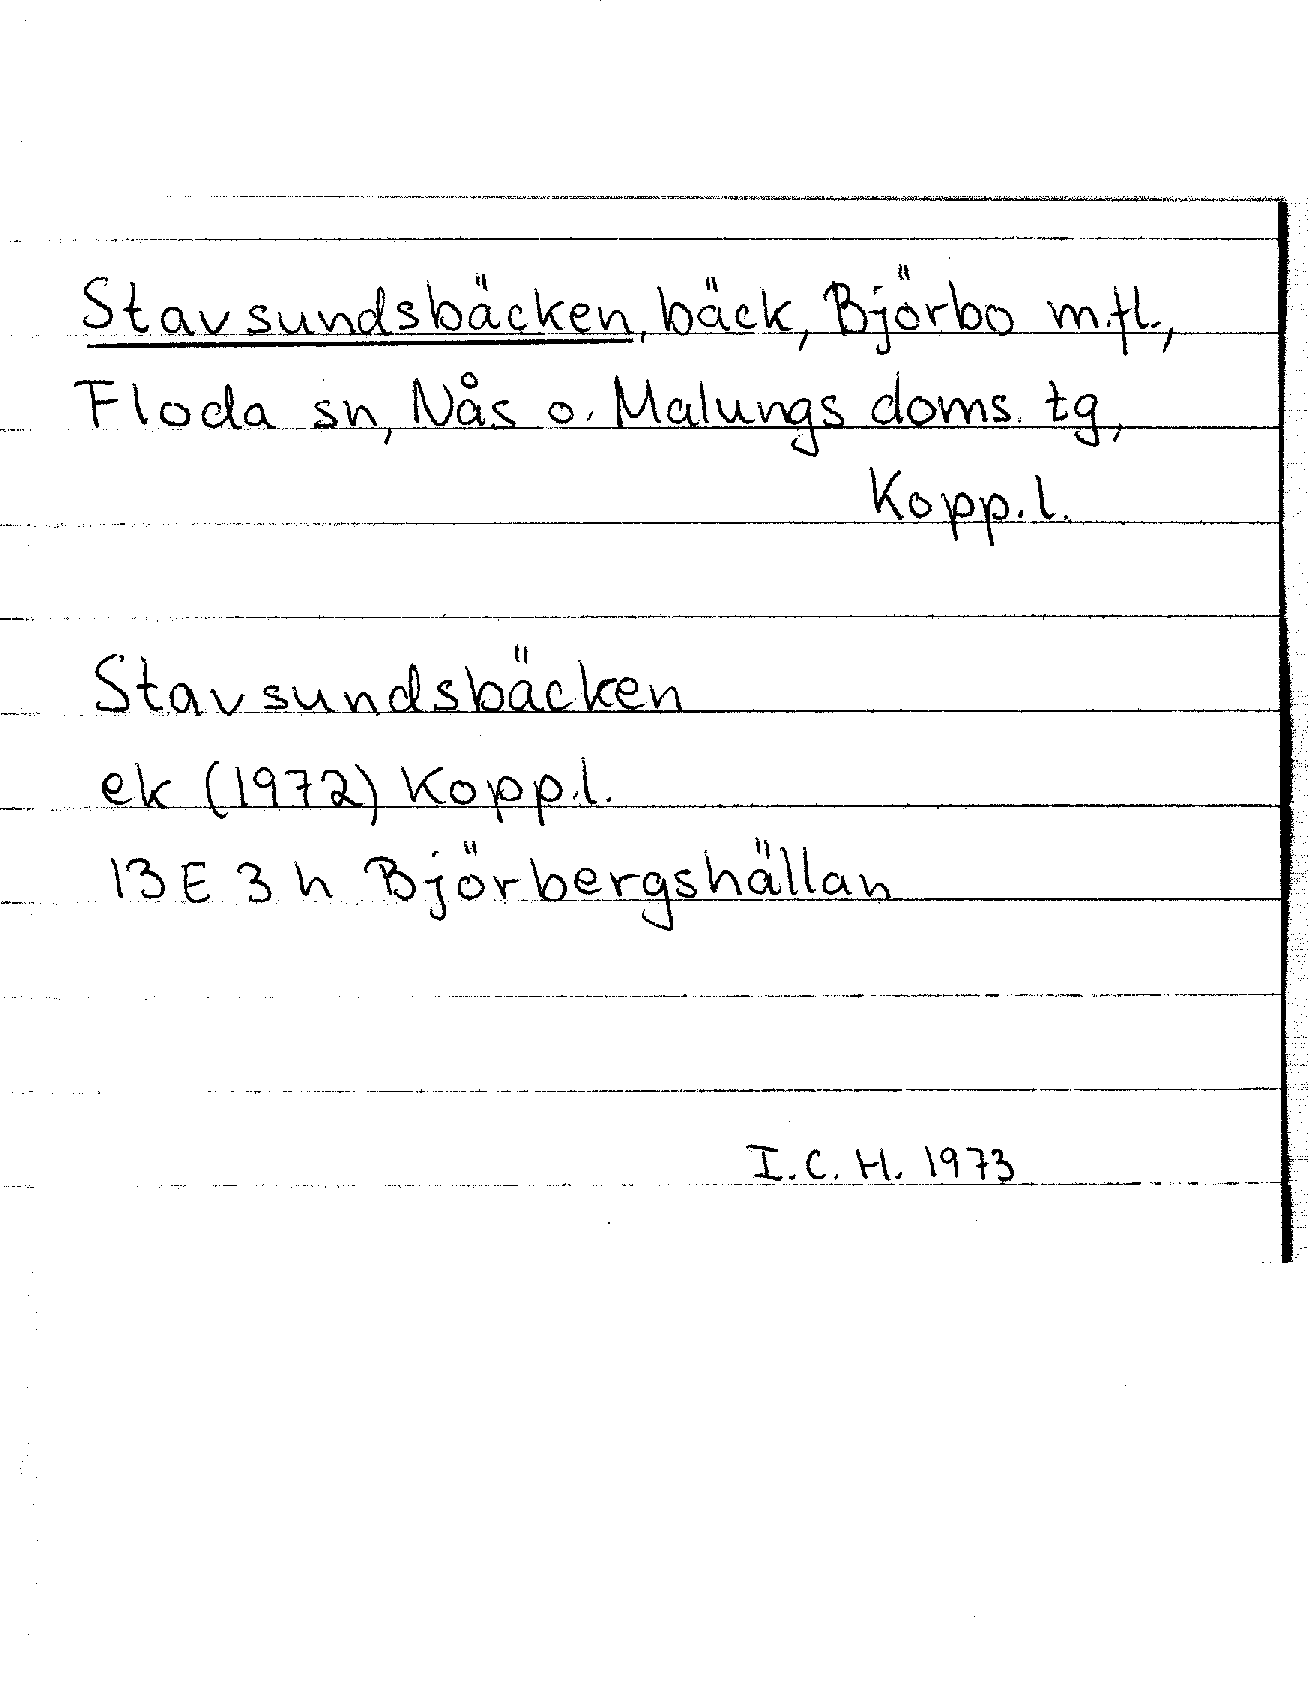 Stavsundsbäcken, bäck, Björbo m.fl.,
Floda sn, Nås o. Malungs doms. tg,
Kopp.l.
Stavsundsbäcken
ek (1972) Kopp.l.
13 E 3 h Björbergshällan
I.C.H. 1973